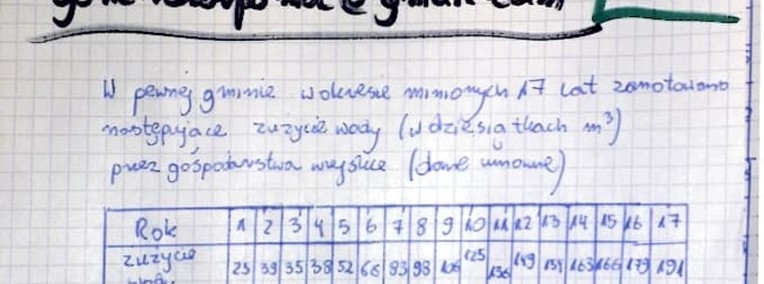 @gmail.com
W pewnej gminie w okresie minionych 17 lat zanotowano
następujące zużycie wody (w dziesiątkach m³)
przez gospodarstwa wiejskie (dane umowne)
Rok 1 2 3 4 5 6 7 8 9 10 11 12 13 14 15 16 17
zużycie 25 39 35 38 52 66 83 98 106 125 136 149 159 163 166 179 191